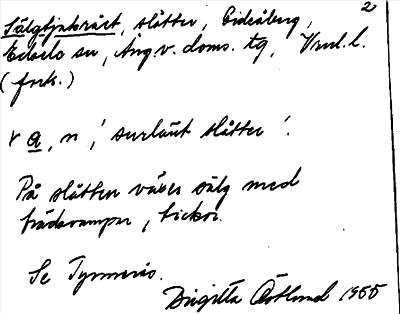 2
Sälgtjuksråst, slåtter, Eideåberg,
Edsele sn, Ång.v. doms. tg, Vnnl. l.
(fork.)
r a, n, 'surlänt slåtter'.
På slåtten växer sälg med
trädsvampar, tickor.
Se
Birgitta Östlund 1955